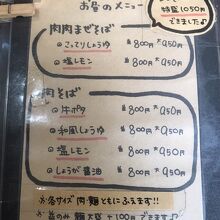 お昼のメニュー
特盛 1050円
できました♪
肉肉まぜそば
◎こってりしょうゆ 並800円 大950円
◎塩レモン 並800円 大950円
肉そば
◎牛ポタ 並800円 大950円
◎和風しょうゆ 並800円 大950円
◎塩レモン 並800円 大950円
◎しょうが醤油 並800円 大950円
☆各サイズ 肉・麺ともにふえます!!
麺大盛 +100円できます